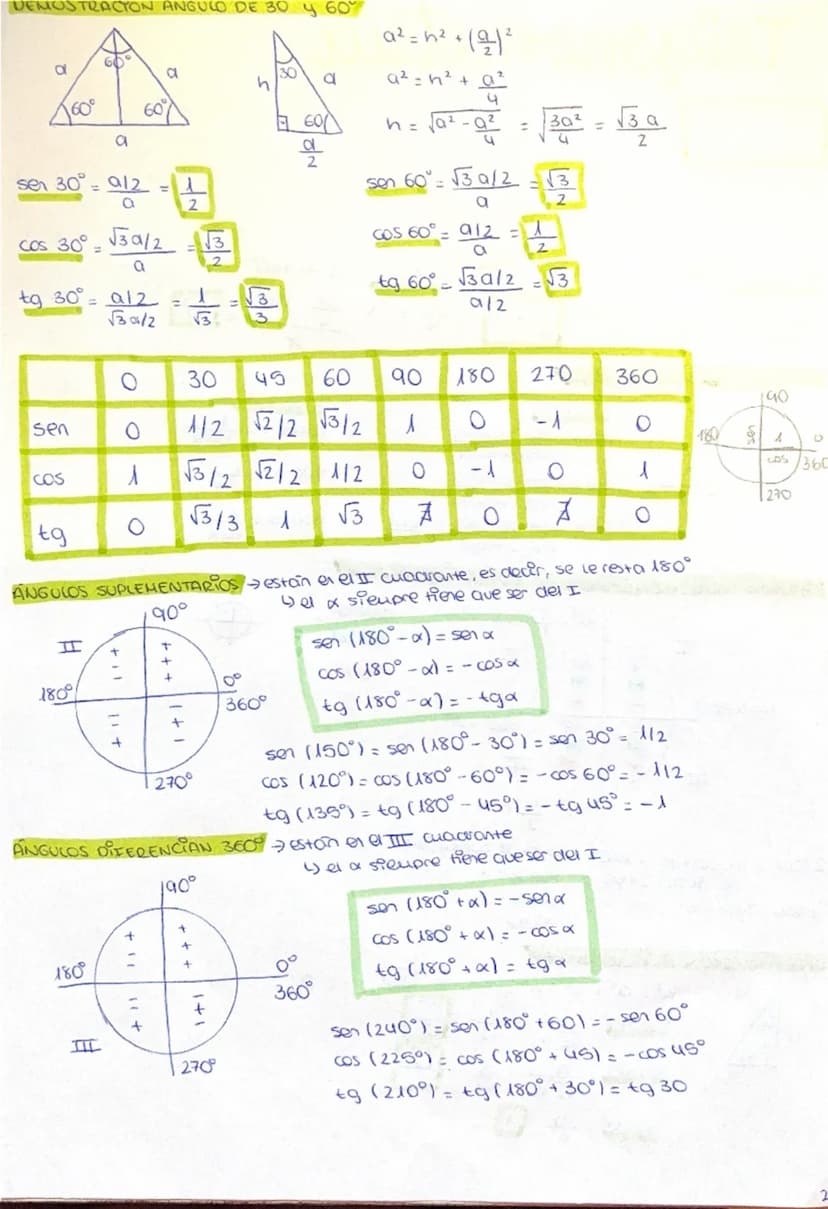 DEMOSTRACIÓN ÁNGULO DE 30 y 60°
a 60° a
60° 60°
a
h 30 a
60
a/2
a² = h² + (a/2)²
a² = h² + a²/4
h = √(a² - a²/4) = √(3a²/4) = √3 a/2
sen 30° = a/2 / a = 1/2
cos 30° = √3a/2 / a = √3/2
tg 30° = a/2 / √3a/2 = 1/√3 = √3/3
sen 60° = √3a/2 / a = √3/2
cos 60° = a/2 / a = 1/2
tg 60° = √3a/2 / a/2 = √3
0 30 45 60 90 180 270 360
sen 0 1/2 √2/2 √3/2 1 0 -1 0
cos 1 √3/2 √2/2 1/2 0 -1 0 1
tg 0 √3/3 1 √3 ∄ 0 ∄ 0
90
180 sen 1 0
cos 360
270
ÁNGULOS SUPLEMENTARIOS → están en el II cuadrante, es decir, se le resta 180°
↳ el α siempre tiene que ser del I
90°
II
+ - -
+ + +
180° 0°
360°
- - +
- + -
270°
sen (180° - α) = sen α
cos (180° - α) = - cos α
tg (180° - α) = - tg α
sen (150°) = sen (180° - 30°) = sen 30° = 1/2
cos (120°) = cos (180° - 60°) = - cos 60° = - 1/2
tg (135°) = tg (180° - 45°) = - tg 45° = - 1
ÁNGULOS DIFERENCIAN 360° → están en el III cuadrante
↳ el α siempre tiene que ser del I
90°
+ - -
+ + +
180° 0°
360°
- - +
- + -
III
270°
sen (180° + α) = - sen α
cos (180° + α) = - cos α
tg (180° + α) = tg α
sen (240°) = sen (180° + 60) = - sen 60°
cos (225°) = cos (180° + 45) = - cos 45°
tg (210°) = tg (180° + 30°) = tg 30
2